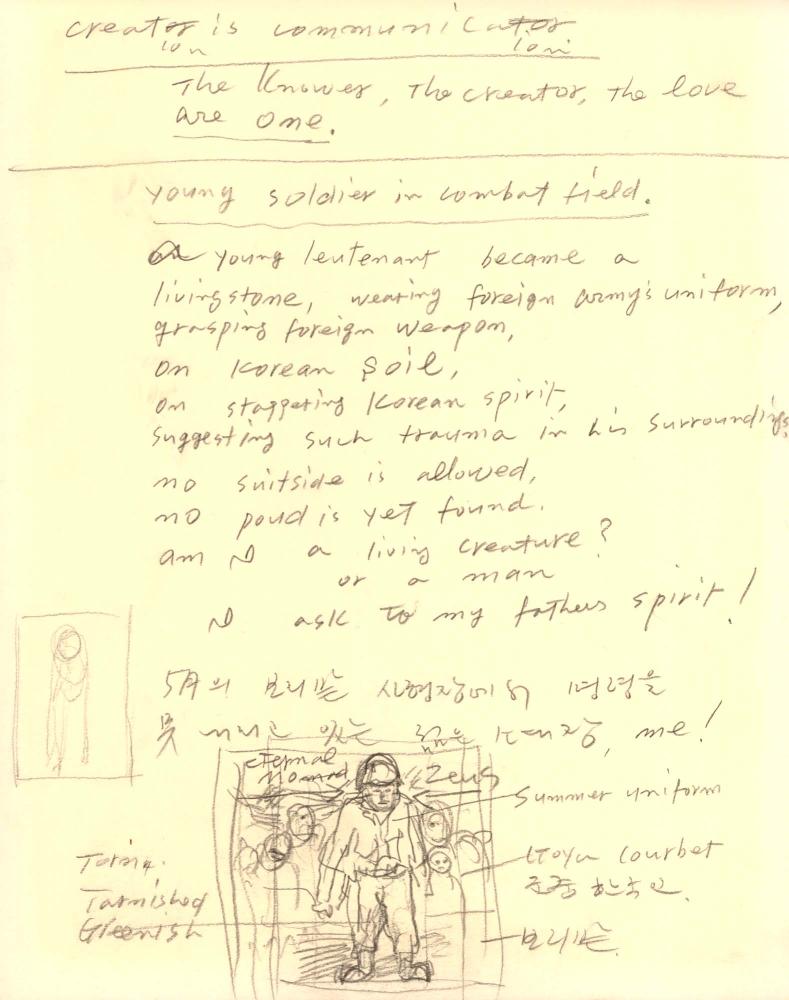 creator is communicator
ion ion
The Knower, The creator, The love
are one.
young soldier in combat field.
a young leutenant became a
livingstone, wearing foreign army's uniform,
grasping foreign weapon,
on Korean soil,
on staggering Korean spirit,
suggesting such trauma in his surroundings.
no suitside is allowed,
no poud is yet found.
am I a living creature?
or a man
I ask to my fathers spirit!
5月의 보리밭 사형장에서 명령을
못 내리고 있는 젊은 소대장, me!
Eternal
Nomad
Zeus
Summer uniform
Goya Courbet
군중 한국인.
Tarnished
Greenish
보리밭